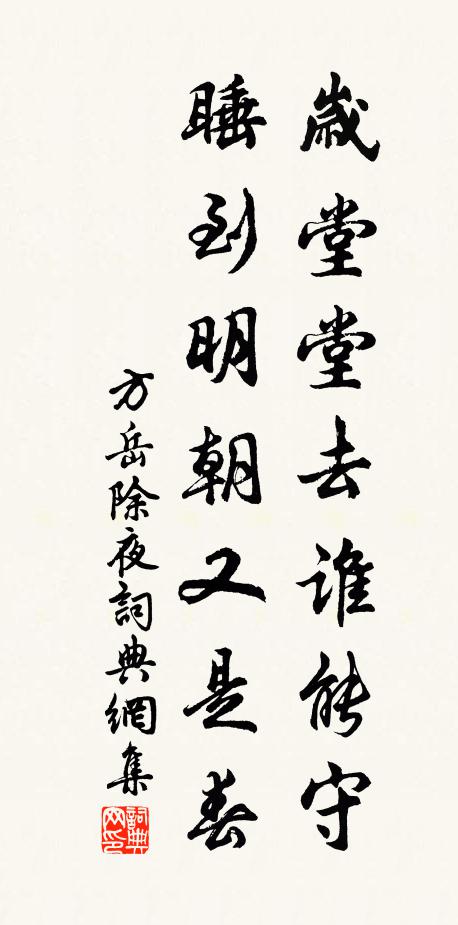 歲堂堂去誰能守
睡到明朝又是春
方岳除夜詞典網集
詞典网印